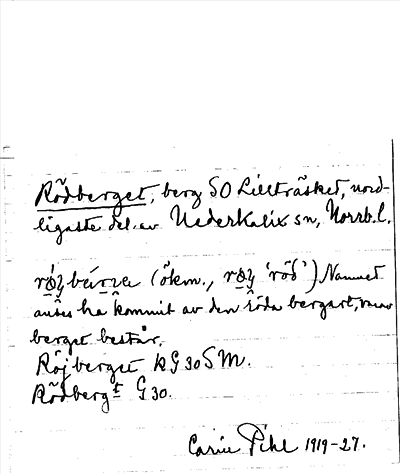 Rödberget, berg SO Lillträsket, nord-
ligaste del. av Nederkalix sn, Norrb.l.
(ökn., 'röd') Namnet
anses ha kommit av den röda bergart, varav
berget består.
Röjberget RG 30 SM.
Rödbergt G 30.
Carin Pihl 1919-27.